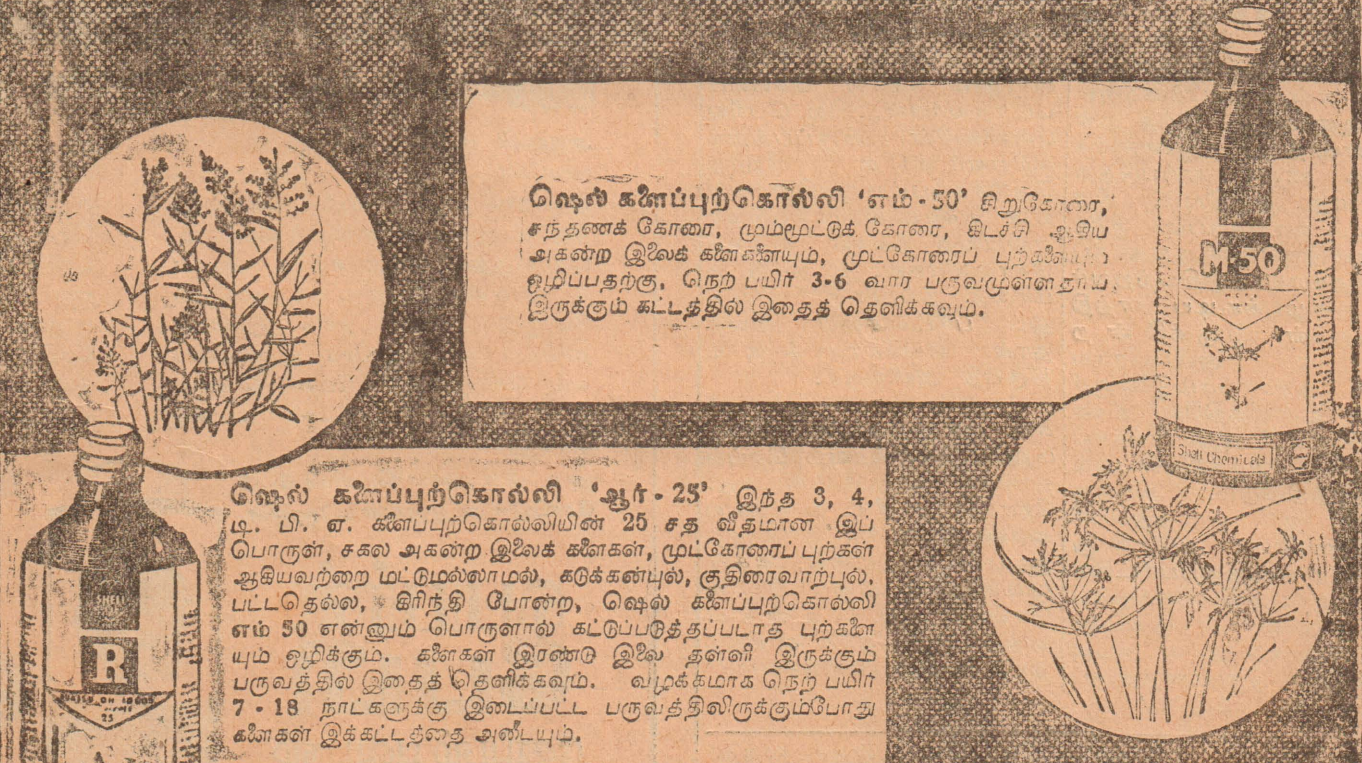 ஷெல் களைப்புற்கொல்லி ‘எம் - 50’ கிறுகோரை,
சந்தணக் கோரை, மும்மூட்டுக் கோரை, கிடச்சி ஆகிய
அகன்ற இலைக் களைகளையும், முட்கோரைப் புற்களையும்
ஒழிப்பதற்கு, நெற் பயிர் 3-6 வார பருவமுள்ளதாய்
இருக்கும் கட்டத்தில் இதைத் தெளிக்கவும்.
M-50
Shell Chemicals
ஷெல் களைப்புற்கொல்லி ‘ஆர் - 25’ இந்த 3, 4,
டி. பி. ஏ. களைப்புற்கொல்லியின் 25 சத வீதமான இப்
பொருள், சகல அகன்ற இலைக் களைகள், முட்கோரைப் புற்கள்
ஆகியவற்றை மட்டுமல்லாமல், கடுக்கன்புல், குதிரைவாற்புல்,
பட்டதெல்ல, கிரிந்தி போன்ற, ஷெல் களைப்புற்கொல்லி
எம் 50 என்னும் பொருளால் கட்டுப்படுத்தப்படாத புற்களை
யும் ஒழிக்கும். களைகள் இரண்டு இலை தள்ளி இருக்கும்
பருவத்தில் இதைத் தெளிக்கவும். வழக்கமாக நெற் பயிர்
7 - 18 நாட்களுக்கு இடைப்பட்ட பருவத்திலிருக்கும்போது
களைகள் இக்கட்டத்தை அடையும்.
SHELL
R
25